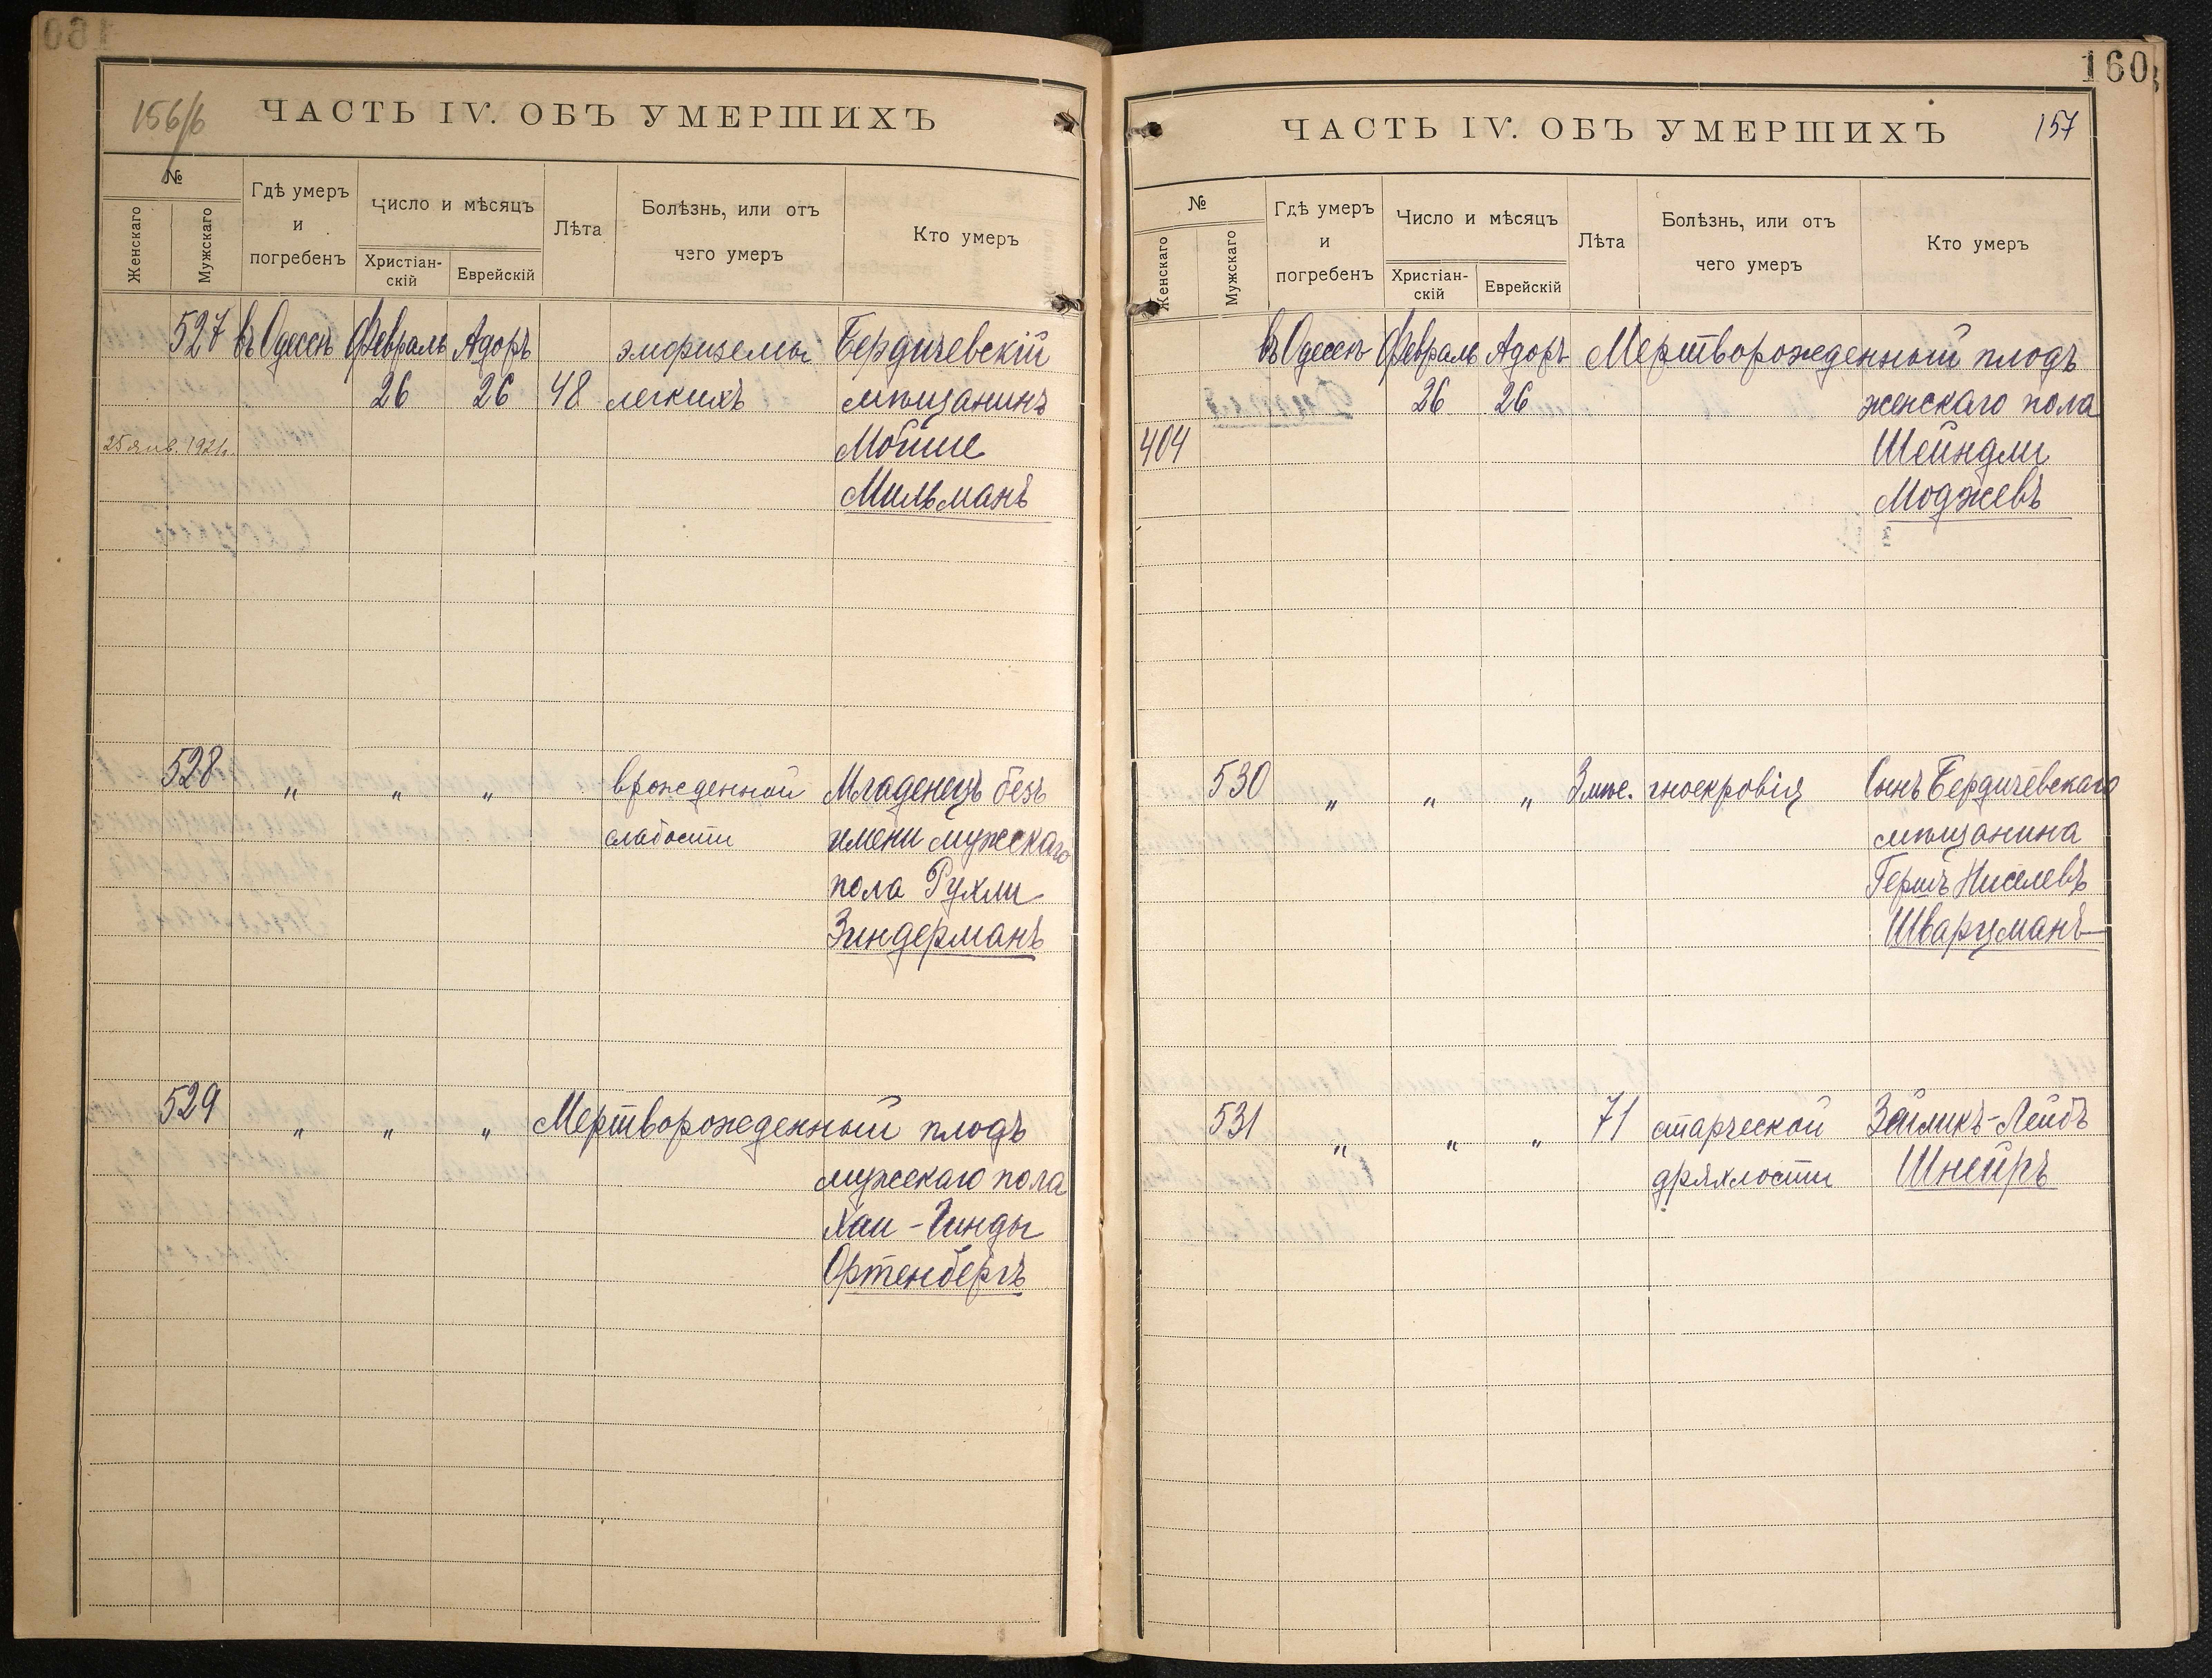 156/б
ЧАСТЬ IV. ОБЪ УМЕРШИХЪ
№
Женскаго
Мужскаго
Гдѣ умеръ
и
погребенъ
Число и мѣсяцъ
Христіан-
скій
Еврейскій
Лѣта
Болѣзнь, или отъ
чего умеръ
Кто умеръ
527 въ Одессѣ Февраль Адоръ эмфиземы Бердичевскій
26 26 48 легкихъ мѣщанинъ
25 янв. 1921г. Мойше
Мильманъ
528 " " " врожденной Младенецъ безъ
слабости имени мужскаго
пола Рухли
Зиндерманъ
529 " " " Мертворожденный плодъ
мужскаго пола
Хаи-Гинды
Ортенбергъ
160
ЧАСТЬ IV. ОБЪ УМЕРШИХЪ
157
№
Женскаго
Мужскаго
Гдѣ умеръ
и
погребенъ
Число и мѣсяцъ
Христіан-
скій
Еврейскій
Лѣта
Болѣзнь, или отъ
чего умеръ
Кто умеръ
въ Одессѣ Февраль Адоръ Мертворожденный плодъ
26 26 женскаго пола
404 Шейндли
Моджевъ
530 " " " 3 мѣс. гноекровія Сынъ Бердичевскаго
мѣщанина
Гершъ Ниселевъ
Шварцманъ
531 " " " 71 старческой Зейликъ-Лейбъ
дряхлости Шнейръ